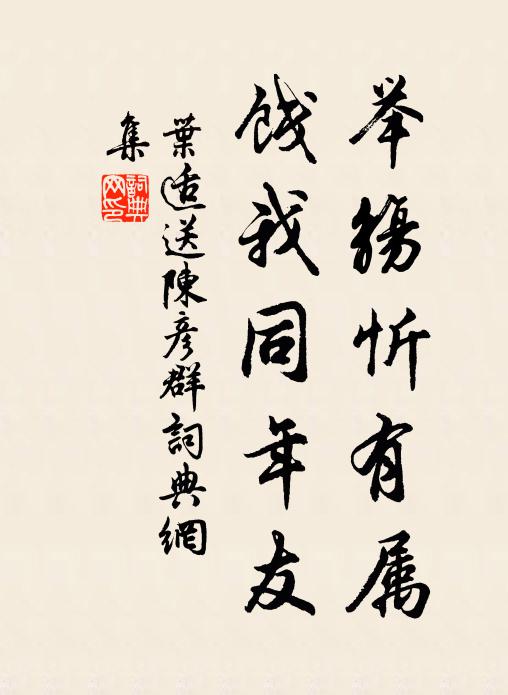 举觞忻有属
饯我同年友
葉适送陳彦群詞典網
集
詞典網印